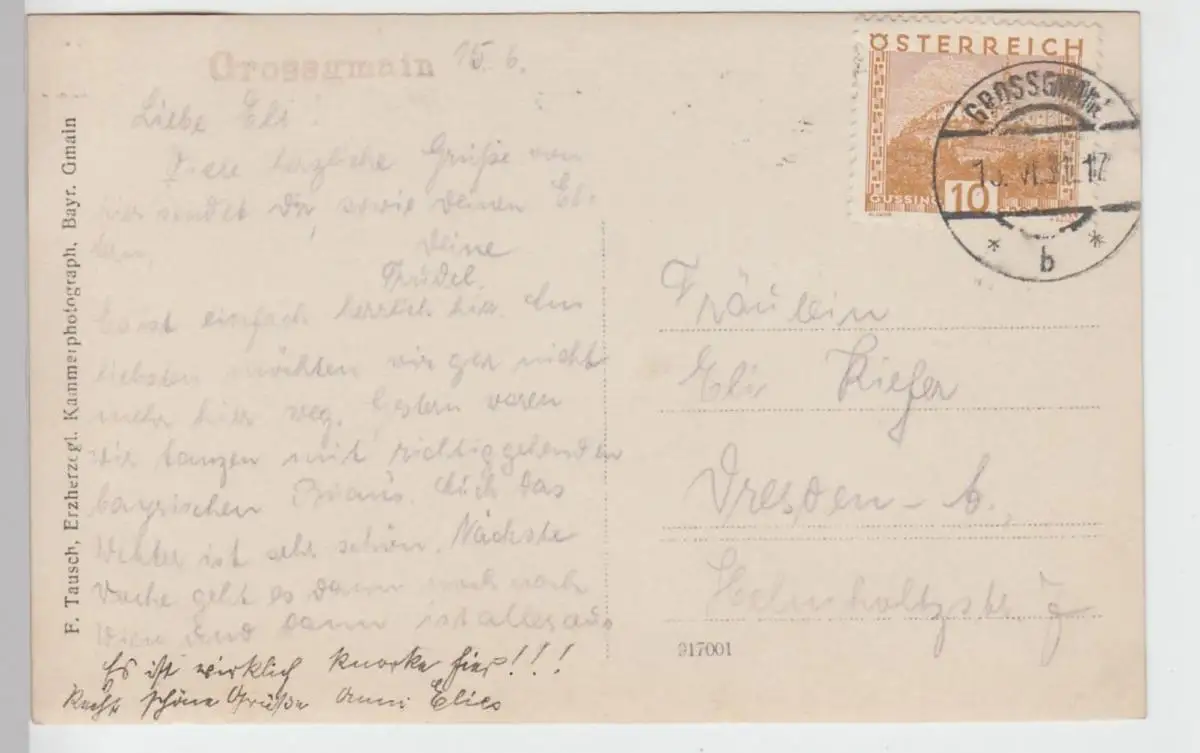 Grossgmain 15. 6.
Liebe Eli!
Viele herzliche Grüße von
hier sendet dir, sowie deinen El-
tern,
Deine
Trudel.
Es ist einfach herrlich hier. Am
liebsten möchten wir gar nicht
mehr hier weg. Gestern waren
wir tanzen mit richtiggehenden
bayrischen Auch das
Wetter ist sehr schön. Nächste
Woche geht es dann noch nach
Wien und dann ist alles aus
Es ist wirklich knorke hier!!!
Recht schöne Grüße Anni
F. Tausch, Erzherzogl. Kammerphotograph, Bayr. Gmain
ÖSTERREICH
GÜSSING
10
GROSSGMAIN
15. VI. 31. 17
* b *
Fräulein
Eli Kiefer
Dresden - A.,
Helmholtzstr. 7
917001